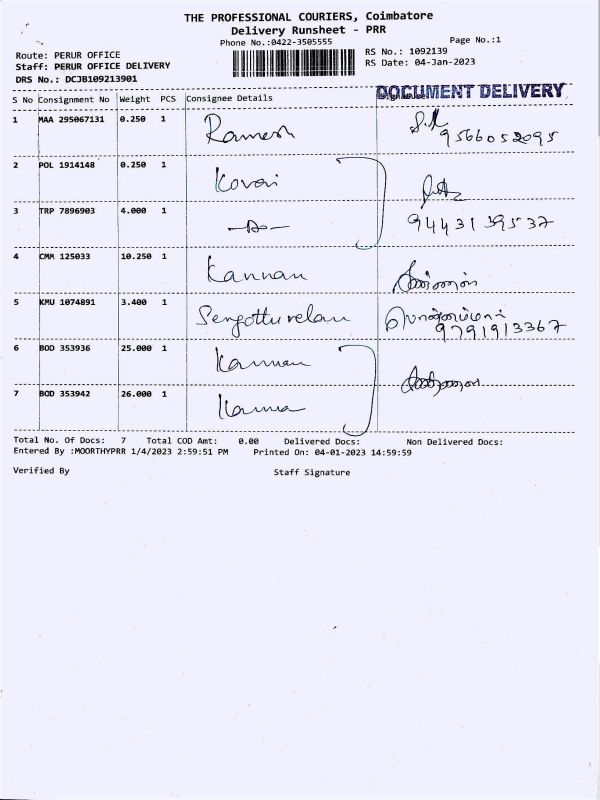 THE PROFESSIONAL COURIERS, Coimbatore
Delivery Runsheet - PRR
Phone No.:0422-3505555
Page No.:1
Route: PERUR OFFICE
RS No.: 1092139
Staff: PERUR OFFICE DELIVERY
RS Date: 04-Jan-2023
DRS No.: DCJB109213901
DOCUMENT DELIVERY
S No Consignment No Weight PCS Consignee Details
1 MAA 295067131 0.250 1 Ramesh
9566052095
2 POL 1914148 0.250 1 Kovai
3 TRP 7896903 4.000 1 9443139537
4 CMM 125033 10.250 1 Kannan
5 KMU 1074891 3.400 1 Sengottuvelan
9791913367
6 BOD 353936 25.000 1 Kannan
7 BOD 353942 26.000 1
Total No. Of Docs: 7 Total COD Amt: 0.00 Delivered Docs: Non Delivered Docs:
Entered By :MOORTHYPRR 1/4/2023 2:59:51 PM Printed On: 04-01-2023 14:59:59
Verified By Staff Signature